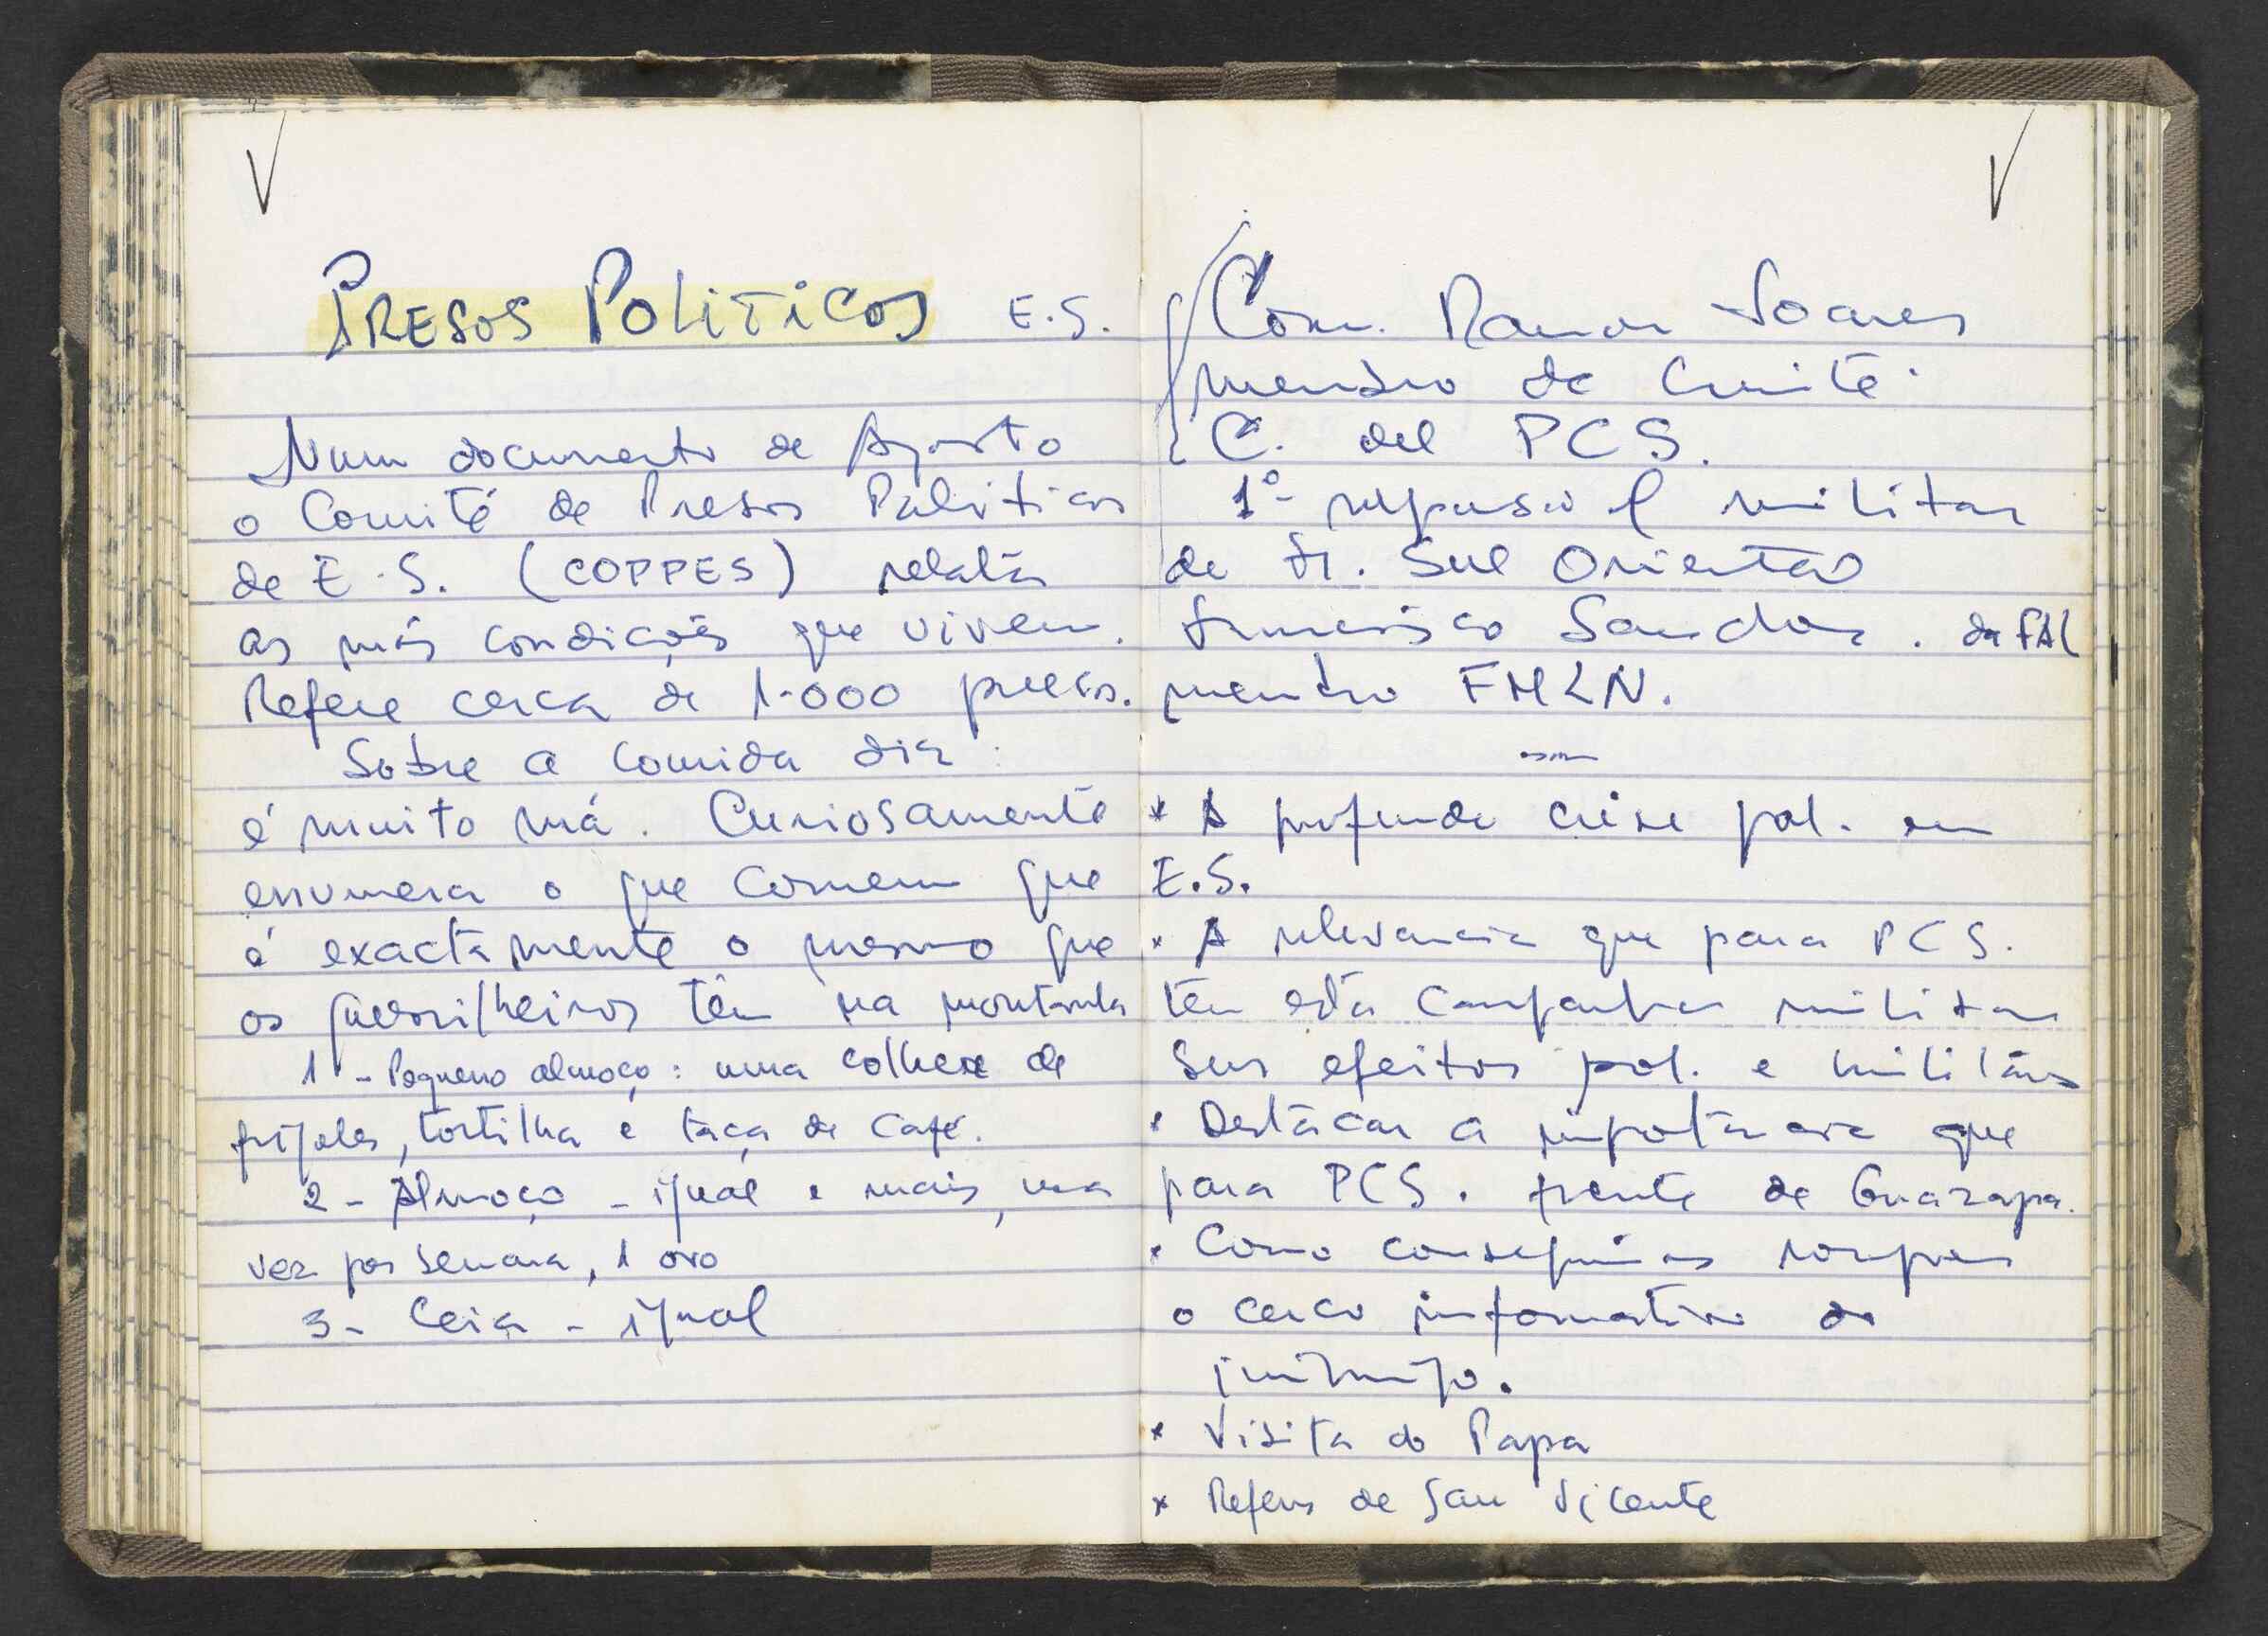 PRESOS POLITICOS E.S.
Num documento de Agosto
o Comité de Presos Politicos
de E.S. (COPPES) relata
as más condições que vivem.
Refere cerca de 1.000 presos.
Sobre a comida diz:
é muito má. Curiosamente
enumera o que comem que
é exactamente o mesmo que
os guerrilheiros têm na montanha
1 - Pequeno almoço: uma colher de
frijoles, tortilha e taça de café.
2 - Almoço - igual e mais, uma
vez por semana, 1 ovo
3 - Ceia - igual
Com. Ramon Soares
membro de Comité
C. del PCS.
1º responsável militar
de Fr. Sul Oriental
Francisco Sanchez. da FAL
membro FMLN.
* A profunda crise pol. em
E.S.
* A relevancia que para PCS.
tem esta campanha militar
seus efeitos pol. e militares
* Destacar a importancia que
para PCS. frente de Guazapa.
* Como conseguimos romper
o cerco informativo do
inimigo.
* Visita do Papa
* Refens de San Vicente